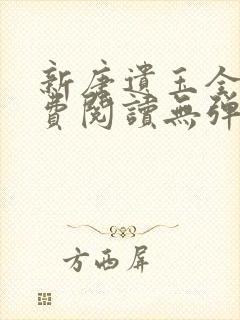 新唐遺玉全
費閱讀無彈
方西屏